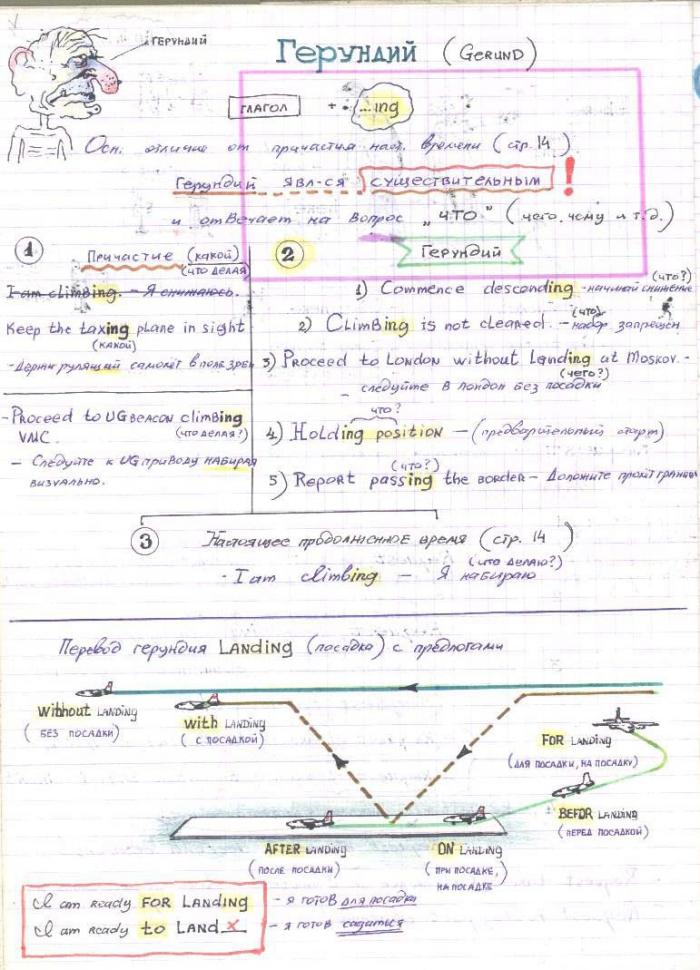 ГЕРУНДИЙ
Герундий (GERUND)
ГЛАГОЛ + ...ing
Осн. отличие от причастия наст. времени (стр. 14)
Герундий явл-ся существительным!
и отвечает на вопрос „что" (чего, чему и т.д.)
Герундий
1
Причастие (какой)
(что делая)
I am climbing. – Я снижаюсь.
Keep the taxing plane in sight
(какой)
- Держи рулящий самолёт в поле зрен
- Proceed to UG BEACON climbing
VMC. (что делая?)
- Следуйте к UG приводу набирая
визуально.
2
(что?)
1) Commence descending - начинай снижение
(что)
2) Climbing is not cleared. – набор запрещён
3) Proceed to London without Landing at Moskov. -
(чего?)
- следуйте в Лондон без посадки
что?
4) Holding position – (предварительный старт)
(что?)
5) Report passing the border – Доложите пролёт границы
3
Настоящее продолженное время (стр. 14)
(что делаю?)
- I am climbing – Я набираю
Перевод герундия LANDING (посадка) с предлогами
Without LANDING
(БЕЗ ПОСАДКИ)
with LANDING
(С ПОСАДКОЙ)
FOR LANDING
(ДЛЯ ПОСАДКИ, НА ПОСАДКУ)
BEFOR LANDING
(ПЕРЕД ПОСАДКОЙ)
AFTER LANDING
(ПОСЛЕ ПОСАДКИ)
ON LANDING
(ПРИ ПОСАДКЕ,
НА ПОСАДКЕ
I am ready FOR LANDING - я готов для посадки
I am ready to LAND x - я готов садиться